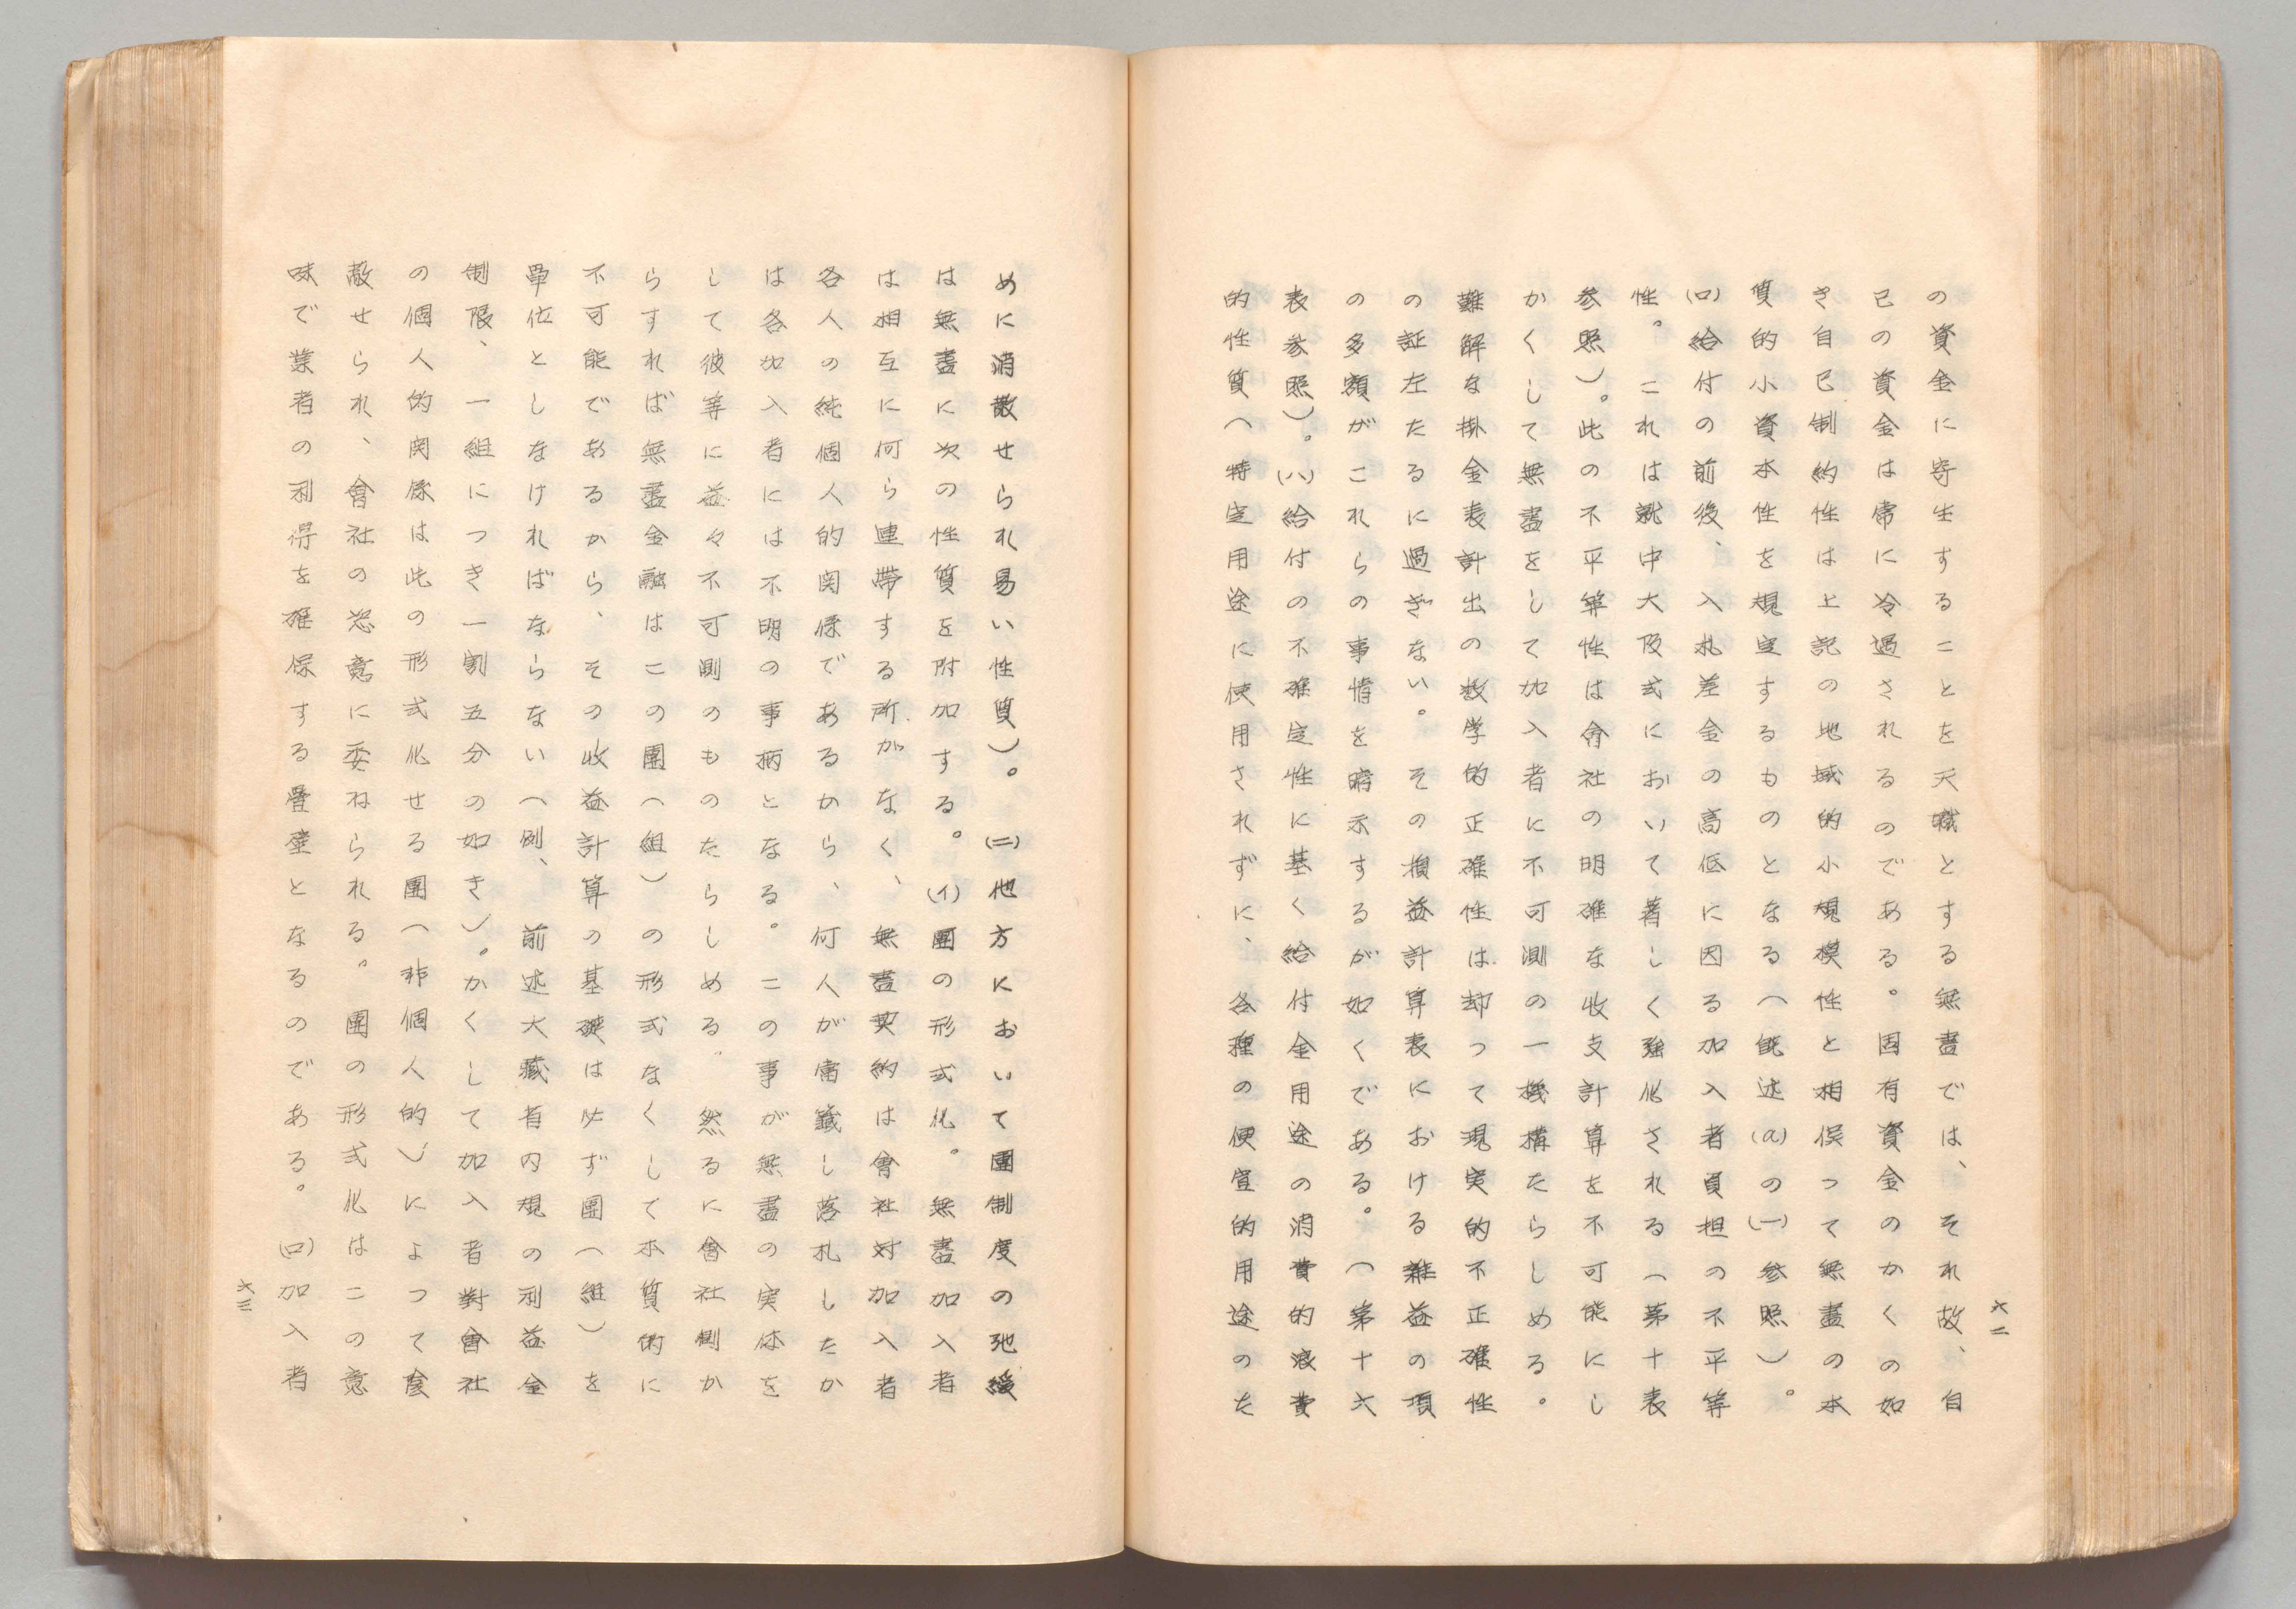 六二
の資金に寄生することを天職とする無盡では、それ故、自
己の資金は常に冷遇されるのである。固有資金のかくの如
き自己制約性は上記の地域的小規模性と相俟つて無盡の本
質的小資本性を規定するものとなる（既述(a)の(一)参照）。
(ロ)給付の前後、入札差金の高低に因る加入者負担の不平等
性。これは就中大阪式において著しく強化される（第十表
参照）。此の不平等性は會社の明確な收支計算を不可能にし
かくして無盡をして加入者に不可測の一機構たらしめる。
難解な掛金表計出の数学的正確性は却つて現実的不正確性
の証左たるに過ぎない。その損益計算表における雑益の項
の多額がこれらの事情を暗示するが如くである。（第十六
表参照）。(ハ)給付の不確定性に基く給付金用途の消費的浪費
的性質（特定用途に使用されずに、各種の便宜的用途のた
めに消散せられ易い性質）。(二)他方において團制度の弛緩
は無盡に次の性質を附加する。(イ)團の形式化。無盡加入者
は相互に何ら連帯する所がなく、無盡契約は會社対加入者
各人の純個人的関係であるから、何人が當籤し落札したか
は各加入者には不明の事柄となる。この事が無盡の実体を
して彼等に益々不可測のものたらしめる。然るに會社側か
らすれば無盡金融はこの團（組）の形式なくして本質的に
不可能であるから、その收益計算の基礎は必ず團（組）を
單位としなければならない（例、前述大藏省内規の利益金
制限、一組につき一割五分の如き）。かくして加入者對會社
の個人的関係は此の形式化せる團（非個人的）によつて蔭
蔽せられ、會社の恣意に委ねられる。團の形式化はこの意
味で業者の利得を確保する壘壁となるのである。(ロ)加入者
六三